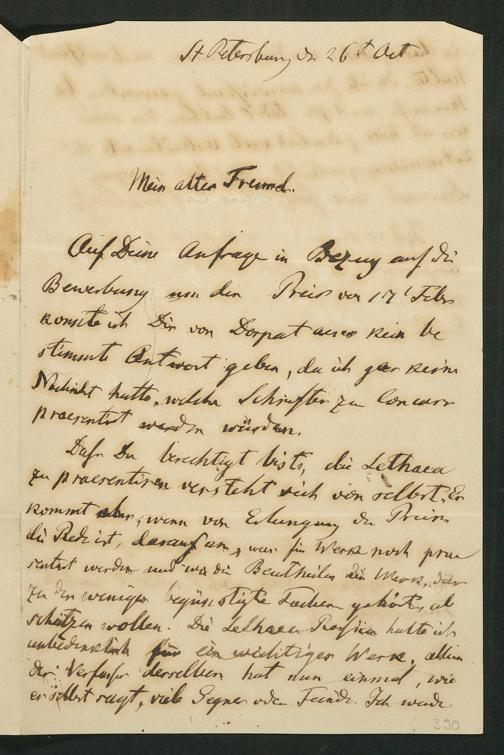 St Petersburg den 26t Oct
Mein alter Freund.
Auf Deine Anfrage in Bezug auf die
Bewerbung um den Preis vom 17t Febr
konnte ich Dir von Dorpat aus kein be
stimmte Antwort geben, da ich gar keine
Nachricht hatte, welche Schriften zur Concurr
praesentirt werden würden.
Dass Du berechtigt bist, die Lethaea
zu praesentiren versteht sich von selbst. Es
kommt aber, wenn von Erlangung des Preises
die Rede ist, darauf an, was für Werke noch prae
sentirt werden und wie die Beurtheiler Dein Werk, das
zu den weniger begünstigten Fächern gehört,
schätzen wollen. Die Lethaea Rossica halte ich
unbedenklich für ein wichtiges Werk, allein
der Verfasser derselben hat nun einmal, wie
er selbst sagt, viele Gegner oder Feinde. Ich werde
390